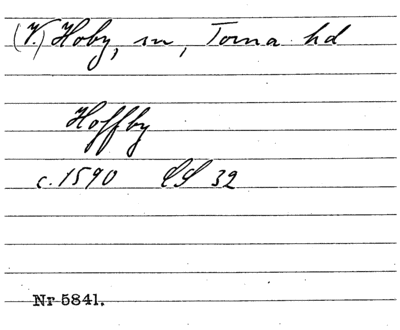 (V.) Hoby, sn, Torna hd
Hoffby
c. 1590 LS 32
Nr 5841.